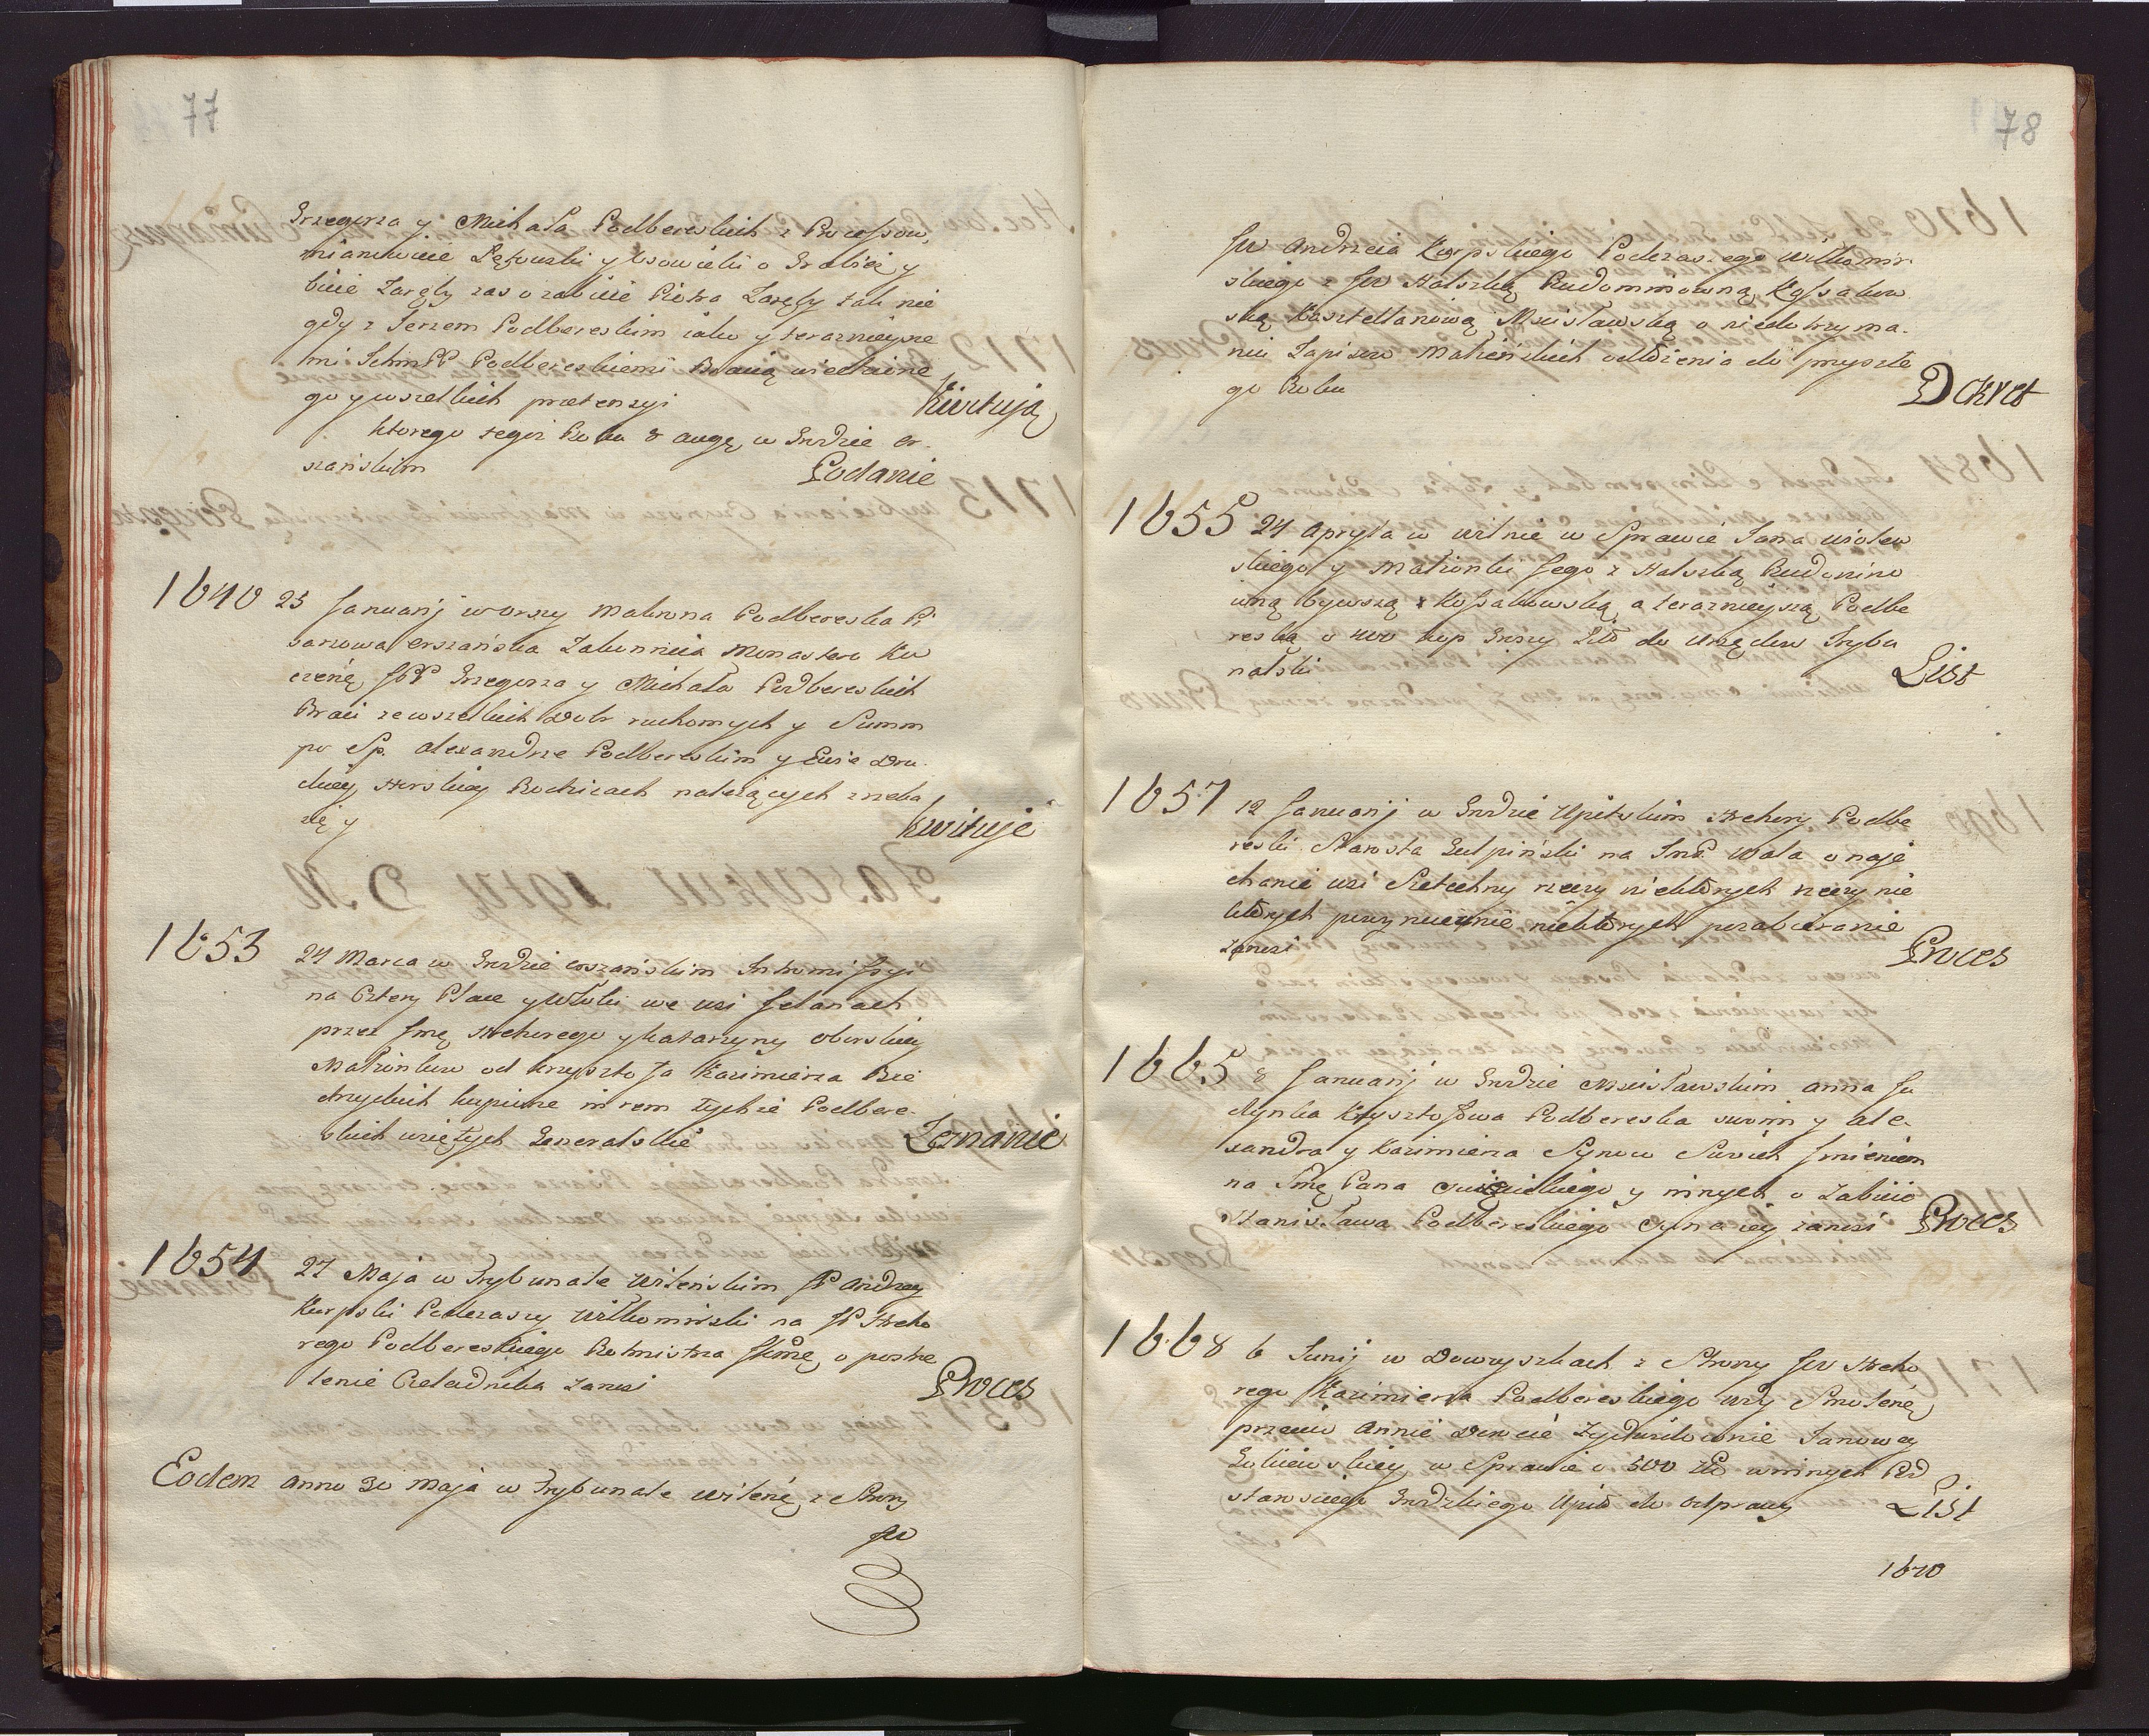 77
Grzegorza y Michała Podbereskich z Processow,
mianowicie y o Grabież y
bicie Zaręby zas o zabicie Piotra Zaręby tak nie
gdy z Jerzem Podbereskim iako y teraznieysze
mi Ichm PP Podbereskiemi Bracią uiechane
go y wszelkich pretensyi Kwitują
ktorego tegoż Roku 8 Aug, w Grodzie Or-
szańskim Podanie
1640 23 Januarij w Orszy Matrona Podbereska Pi
sarzowa Orszańska Zakonnica Monastero Ku
JPP Grzegorza y Michała Podbereskich
Braci ze wszelkich Dobr ruchomych y Summ
po Sp. Alexandrze Podbereskim y Ewie Dru-
ckiey Horskiey Rodzicach należących zrzeka
się y Kwituje
1653 24 Marca w Grodzie Orszańskim Intromissyi
na Cztery Place y Włoki we wsi
przez Jmę Hrehorego y Katarzyny
Małżonkow od Krzysztofa Kazimierza
kupione in rem tychże Podbere-
skich wziętych Generalskie Zeznanie
1654 27 Maja w Trybunale Wileńskim JP Andrzey
Karpski Podczaszy Wiłkomirski na JP Hreho
rego Podbereskiego Rotmistrza o postrze
lenie Czeladnika zaniesi Proces
Eodem Anno 30 Maja w Trybunale Wilenę, z Strony
JW
78
JW Andrzeia Karpskiego Podczaszego Wiłkomir
skiego z JW Halszką Rudominowną Kossakow
ską Kasztellanową Mscisławską o niedotrzyma-
niu Zapisow Małżeńskich odłożenia do przyszłe
go Roku Dekret
1655 24 Apryla w Wilnie w Sprawie Jana
skiego y Małżonki Jego z Halszką Rudomino
wną bywszą Kossakowską a teraznieyszą Podbe
reską o 400 kop Groszy Litt do Urzędow Trybu
nalski List
1657 12 Januarij w Grodzie Upitskim Hrehory Podbe
reski Starosta na Imp. Wala o naje
chanie wsi rzeczy niektorych rzeczy nie
ktorych niektorych pozabieranie
zaniesi Proces
1665 8 Januarij w Grodzie Mscisławskim Anna Ja
Krzysztofowa Podbereska swoim y Ale-
xandra y Kazimierza Synow Swoich Jmieniem
na Jmę Pana y innych o Zabicie
Stanisława Podbereskiego Syna iey zaniesi Proces
1668 6 Junij w z Strony JW Hreho
rego Kazimierza Podbereskiego Wdy Smolenę,
przeciw Annie Janowey
w Sprawie o 500 Zł winnych Pod
starosciego Grodzkiego Upitt do Odprawy List
1670